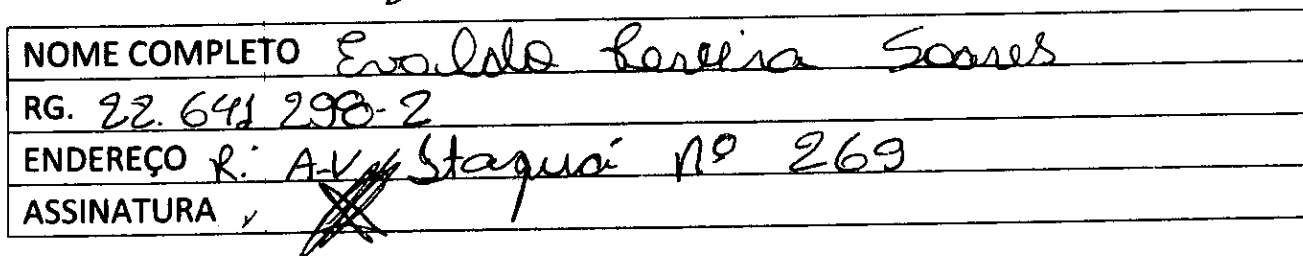 NOME COMPLETO Evaldo Pereira Soares
RG. 22.641 298-2
ENDEREÇO R: A-V Itaquaí Nº 269
ASSINATURA